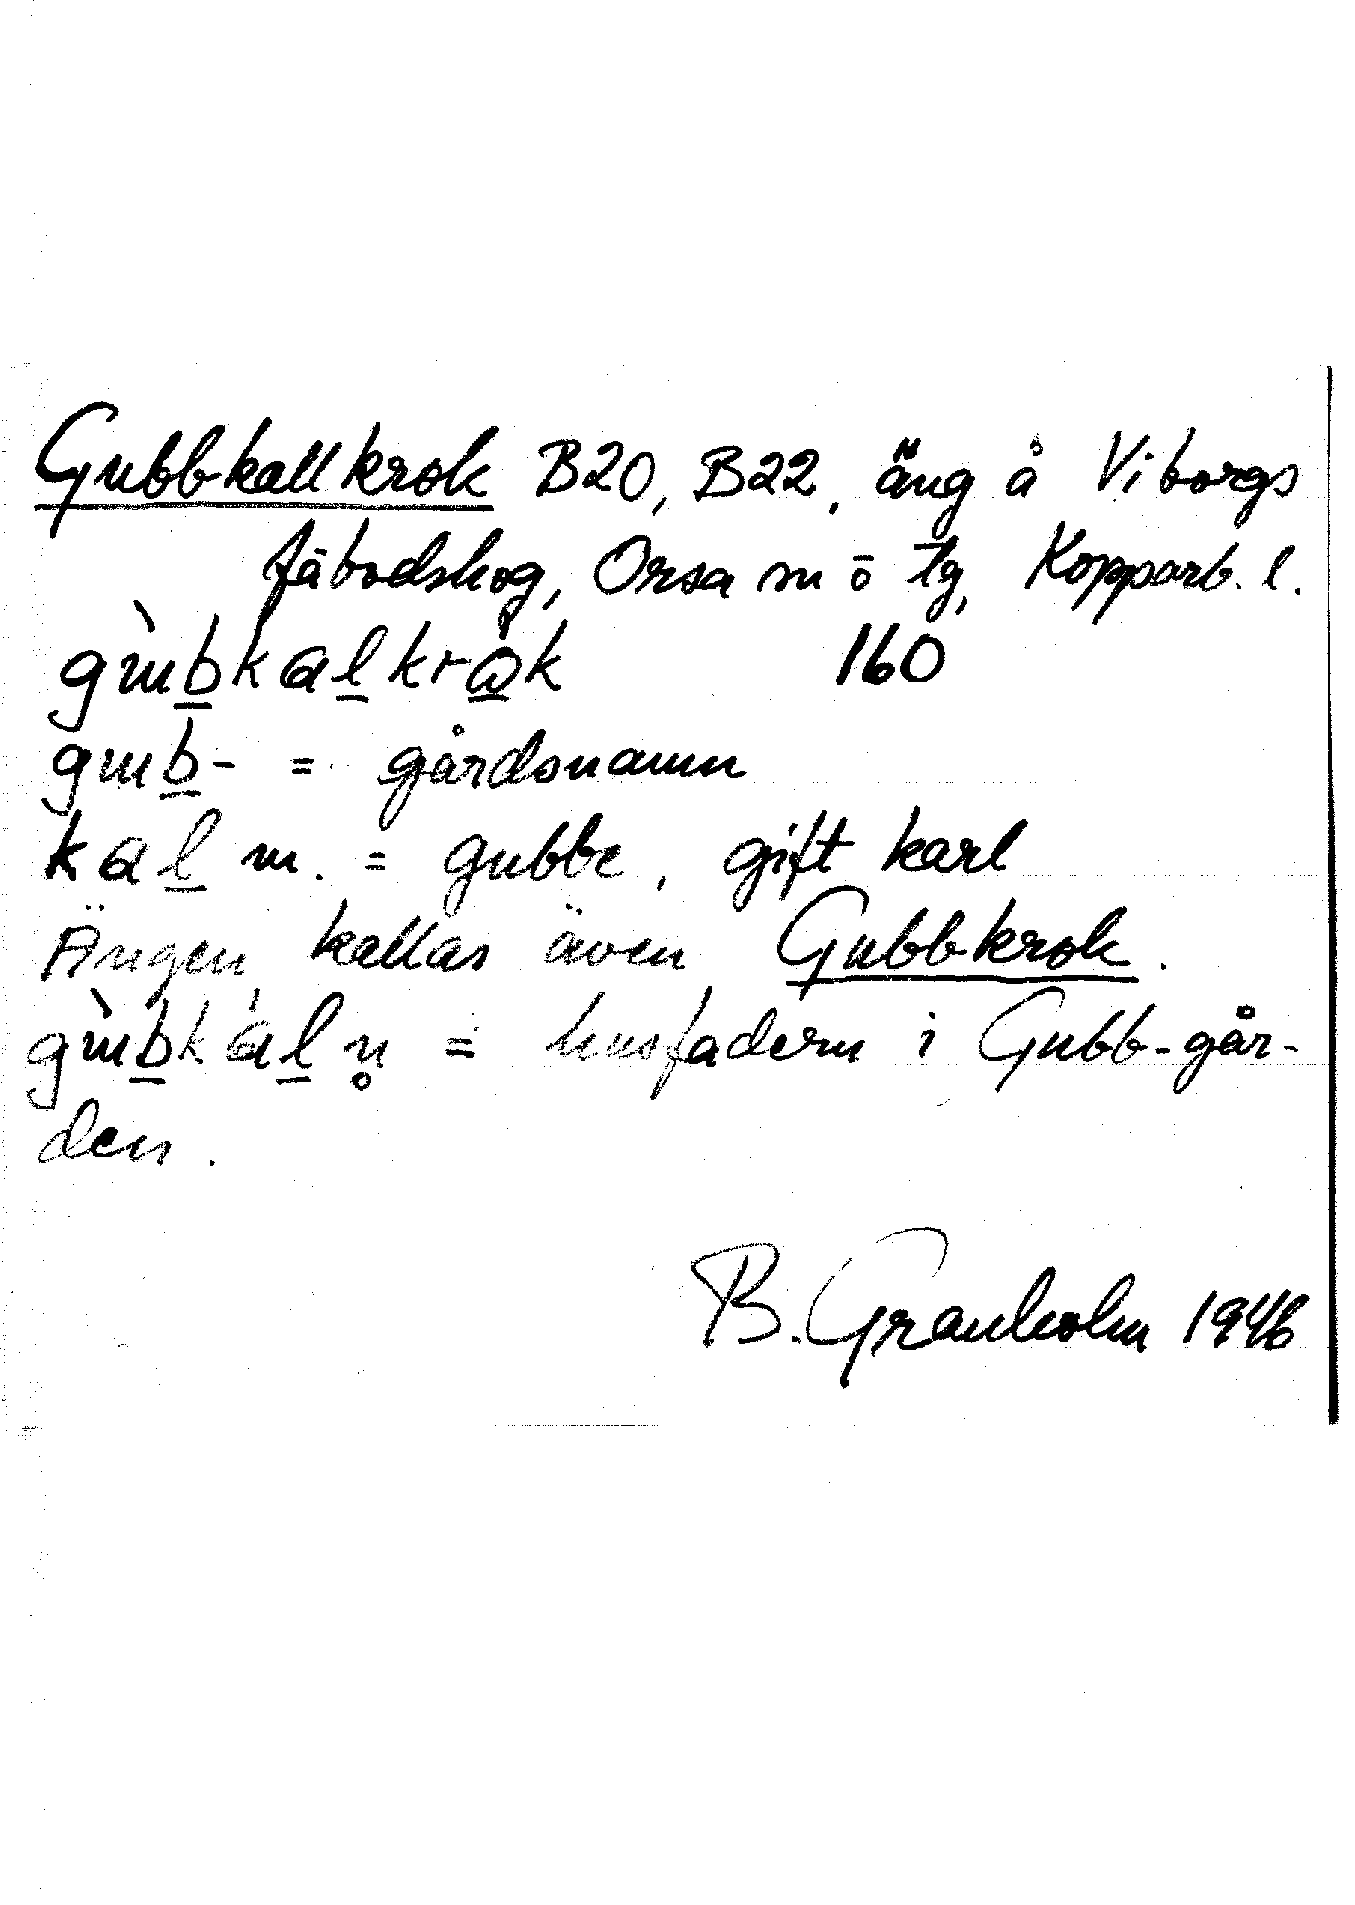 Gubbkallkrok B20, B22, äng å Viborgs
fäbodskog, Orsa sn o tg, Kopparb. l.
gɯ̀b̲kal̲kråk 160
gɯb̲- = gårdsnamn
kal̲ m. = gubbe, gift karl
Ängen kallas även Gubbkrok.
gɯ̀b̲kál̲n̥ = husfadern i Gubb-går-
den.
B. Granholm 1946